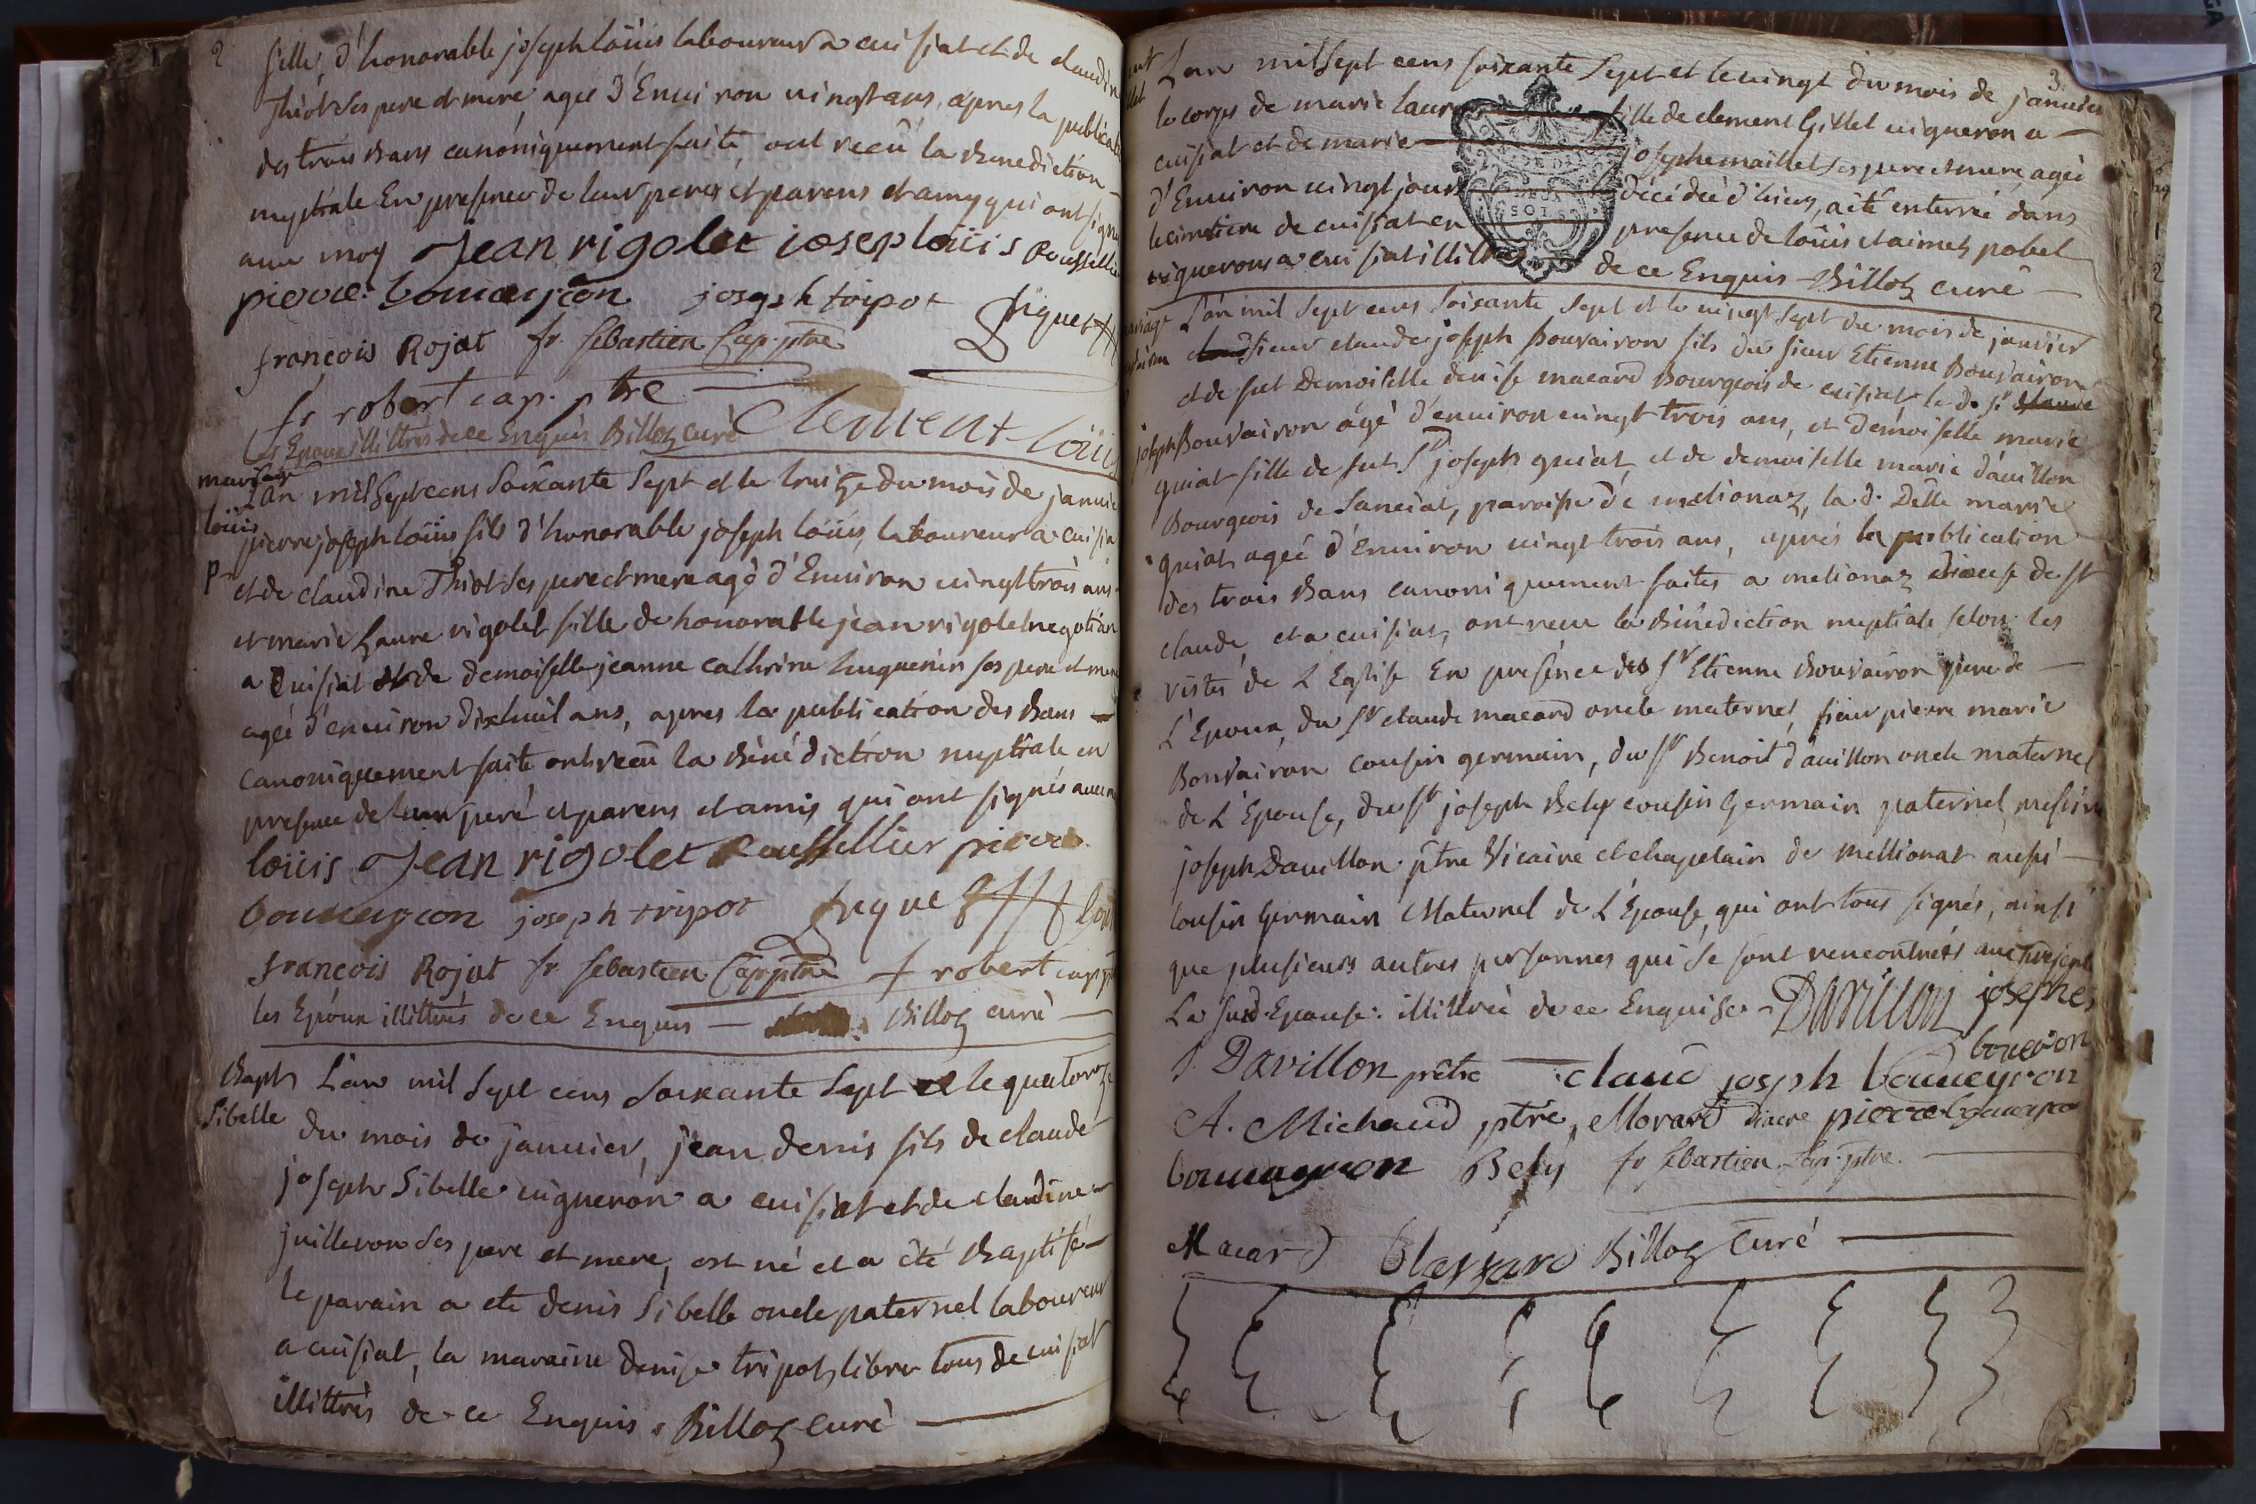 2
fille, d'honorable joseph loüis laboureur a cuisiat et de claudine
Thiot ses pere et mere agée d'Environ vingt ans, apres la publication
des trois Bans canoniquement faite, ont recû la Benediction
nuptiale En presence de leur peres et parens et amy qui ont signé
avec moy Jean rigolet iosep loüis Roussellier
pierre bouveyron joseph tripot fuguet
francois Rojat fr. sebastien Cap. ptre
fr robert cap. ptre
Les Epoux illittrés de ce Enquis Billoz curé Clement loüis
mariage
loüis
L'an mil Sept cens Soixante Sept et le treize du mois de janvier
pierre joseph loüis fils d'honorable joseph loüis, laboureur a cuisiat
et de claudine Thiot ses pere et mere agé d'Environ vingt trois ans
et marie Laure rigolet fille de honorable jean rigolet negotian
a Cuisiat et de demoiselle jeanne cathrine huguenin ses pere et mere
agée d'environ dixhuit ans, apres la publication des Bans
canoniquement faite ont recû la Bénédiction nuptiale en
presence de leur peré et parens et amis qui ont signés avec moy
loüis Jean rigolet Rousellier pierre
bouveyron joseph tripot fuguet loüis
francois Rojat fr sebastien Cap ptre f robert cap pt
les Epoux illittrés de ce Enquis Billoz curé
Bapt
Sibelle
L'an mil Sept cens Soixante Sept et le quatorze
du mois de janvier, jean denis fils de claude
joseph Sibelle vigneron a cuisiat et de claudine
juilleron ses pere et mere, est né et a été Baptisé
le parain a ete denis Sibelle oncle paternel laboureur
a cuisiat, la maraine denise tripoz libre tous de cuisiat
illittrés de ce Enquis. Billoz curé
3
L'an mil Sept cens soixante Sept et le vingt du mois de janvier
le corps de marie laure fille de clement Gillet vigneron a
cuisiat et de marie josephe maillet ses pere et mere, agée
d'Environ vingt jours décédée d'hier, a été enterré dans
le cimetiere de cuisiat en presence de loüis et aimé pobel
vignerons a cuisiat illittrés de ce Enquis Billoz curé
mariage
L'an mil Sept cens Soixante Sept et le vingt Sept du mois de janvier
sieur claude joseph Bouvairon fils du sieur Etienne Bouvairon
et de fut Demoiselle denise macard Bourgeois de cuisiat le d. sr claude
joseph Bouvairon âgé d'environ vingt trois ans, et démoiselle marie
guiat fille de fut Sr joseph guiat et de demoiselle marie d'avillon
Bourgeois de Sanciat, paroisse de melionaz, la d. Delle marie
guiat agée d'Environ vingt trois ans, aprés la publication
des trois Bans canoniquement faites a melionaz diocese de St
claude, et a cuisiat, ont recu la Bénédiction nuptiale selon les
ristes de L'Eglise En presence des Sr Etienne Bouvairon pere de
L'Epoux, du Sr claude macard oncle maternel, sieur pierre marie
Bouvairon cousin germain, du Sr Benoit d'avillon oncle maternel
de L'Epouse, du Sr joseph Bely cousin Germain paternel, messire
joseph Davillon ptre Vicaire et chapelain de mellionat aussi
Cousin Germain Maternel de L'Epouse, qui ont tous signés, ainsi
que plusieurs autres personnes qui se sont rencontrées
La susd. Epouse illittrée de ce Enquise Davillon josephe
J. Davillon prêtre claud joseph bouveyron
bouvéron
A. Michaud ptre, Morard diacre pierre bouveyron
bouvayron Bely fr sebastien Cap. ptre
Macard Billoz Curé